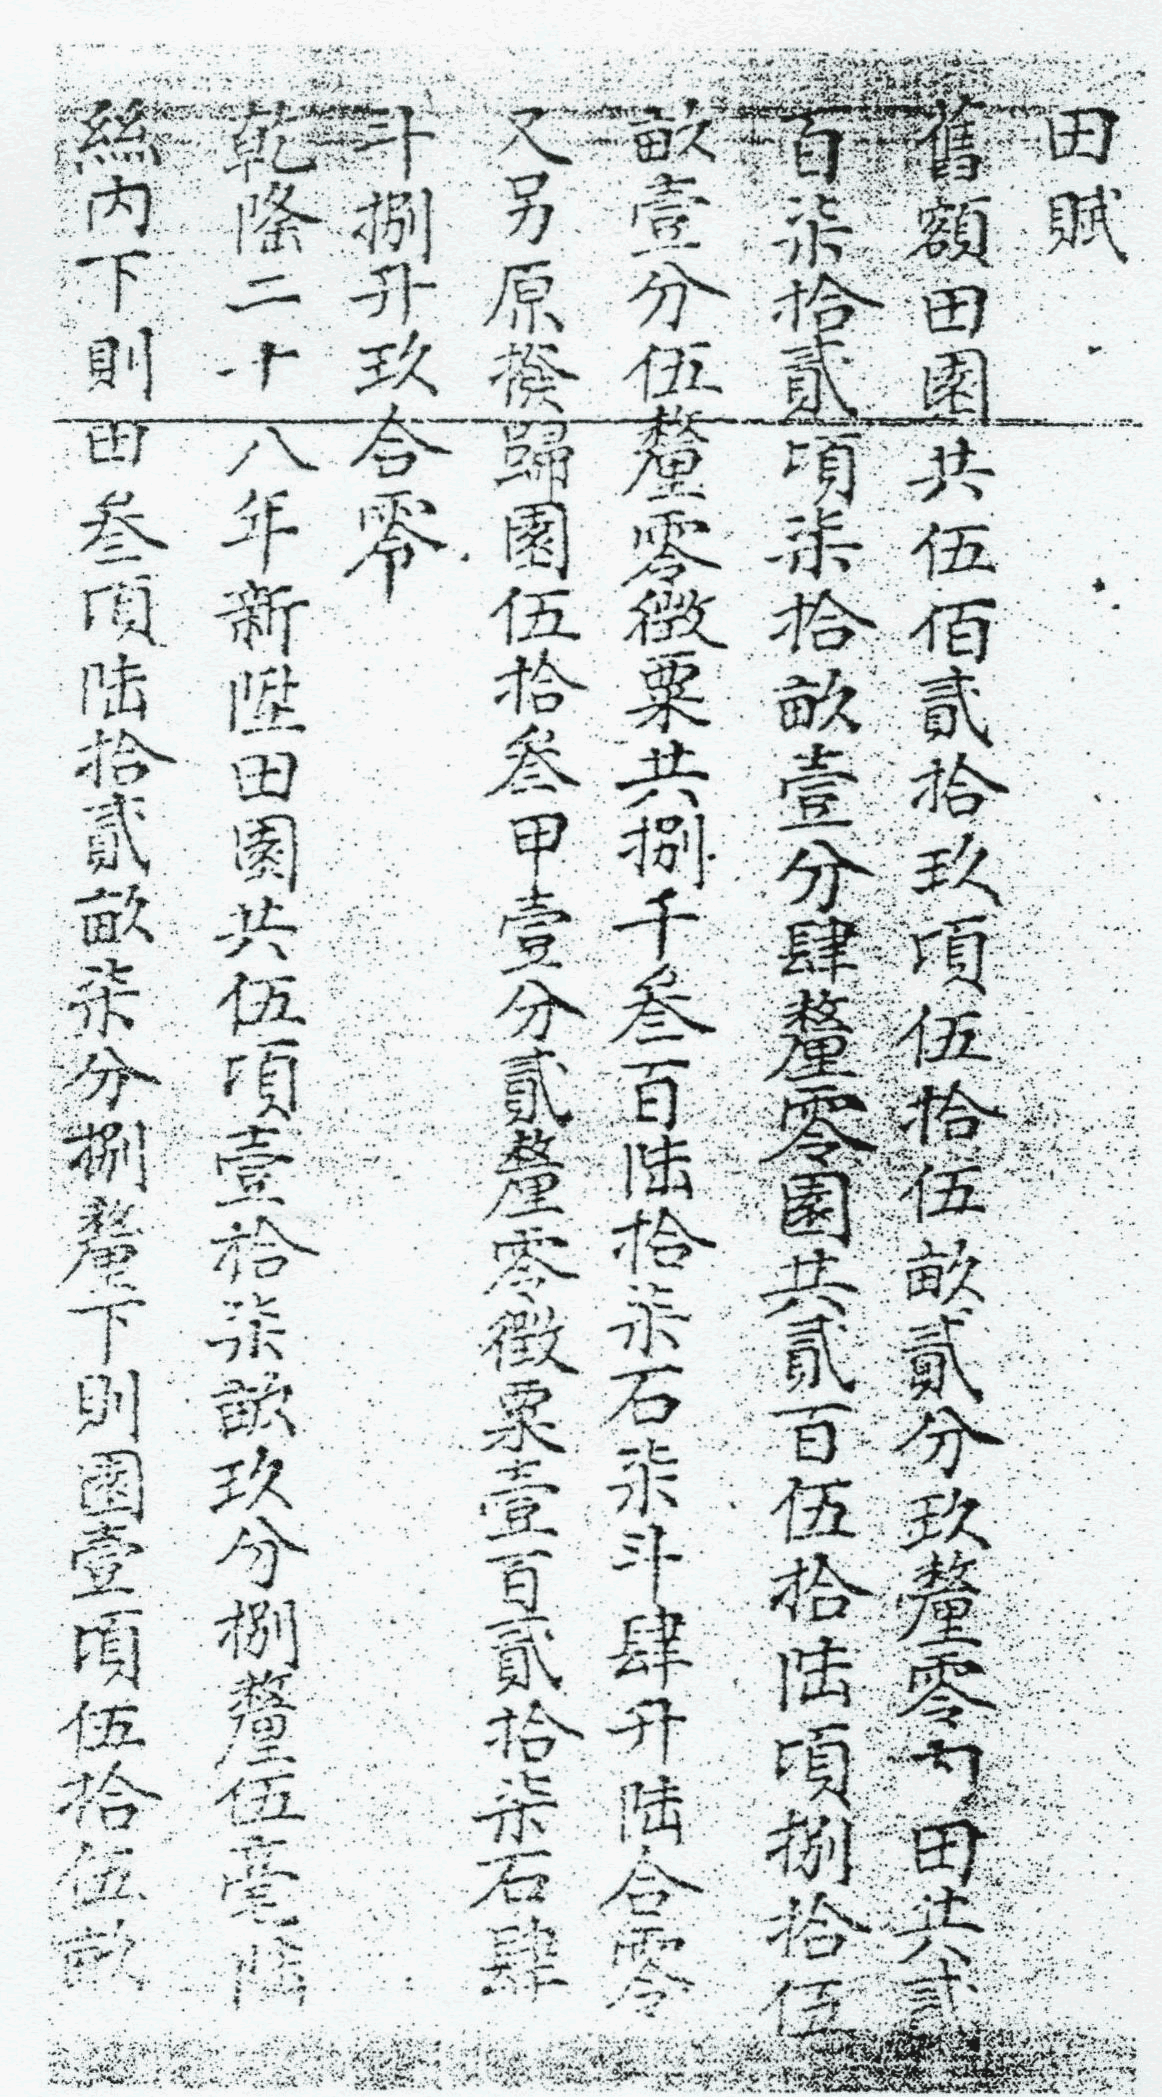 田賦
舊額田園共伍佰貳拾玖頃伍拾伍畝貳分玖釐零內田共貳
百柒拾貳頃柒拾畝壹分肆釐零園共貳百伍拾陸頃捌拾伍
畝壹分伍釐零徵粟共捌千叁百陸拾柒石柒斗肆升陸合零
又另原撥歸園伍拾叁甲壹分貳釐零徵粟壹百貳拾柒石肆
斗捌升玖合零
乾隆二十八年新陞田園共伍頃壹拾柒畝玖分捌釐伍毫陸
絲內下則田叁頃陸拾貳畝柒分捌釐下則園壹頃伍拾伍畝